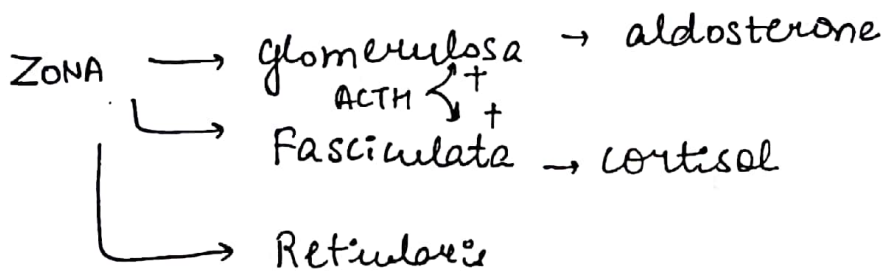 ZONA → glomerulosa → aldosterone
ACTH + +
Fasciculata → cortisol
Reticularis